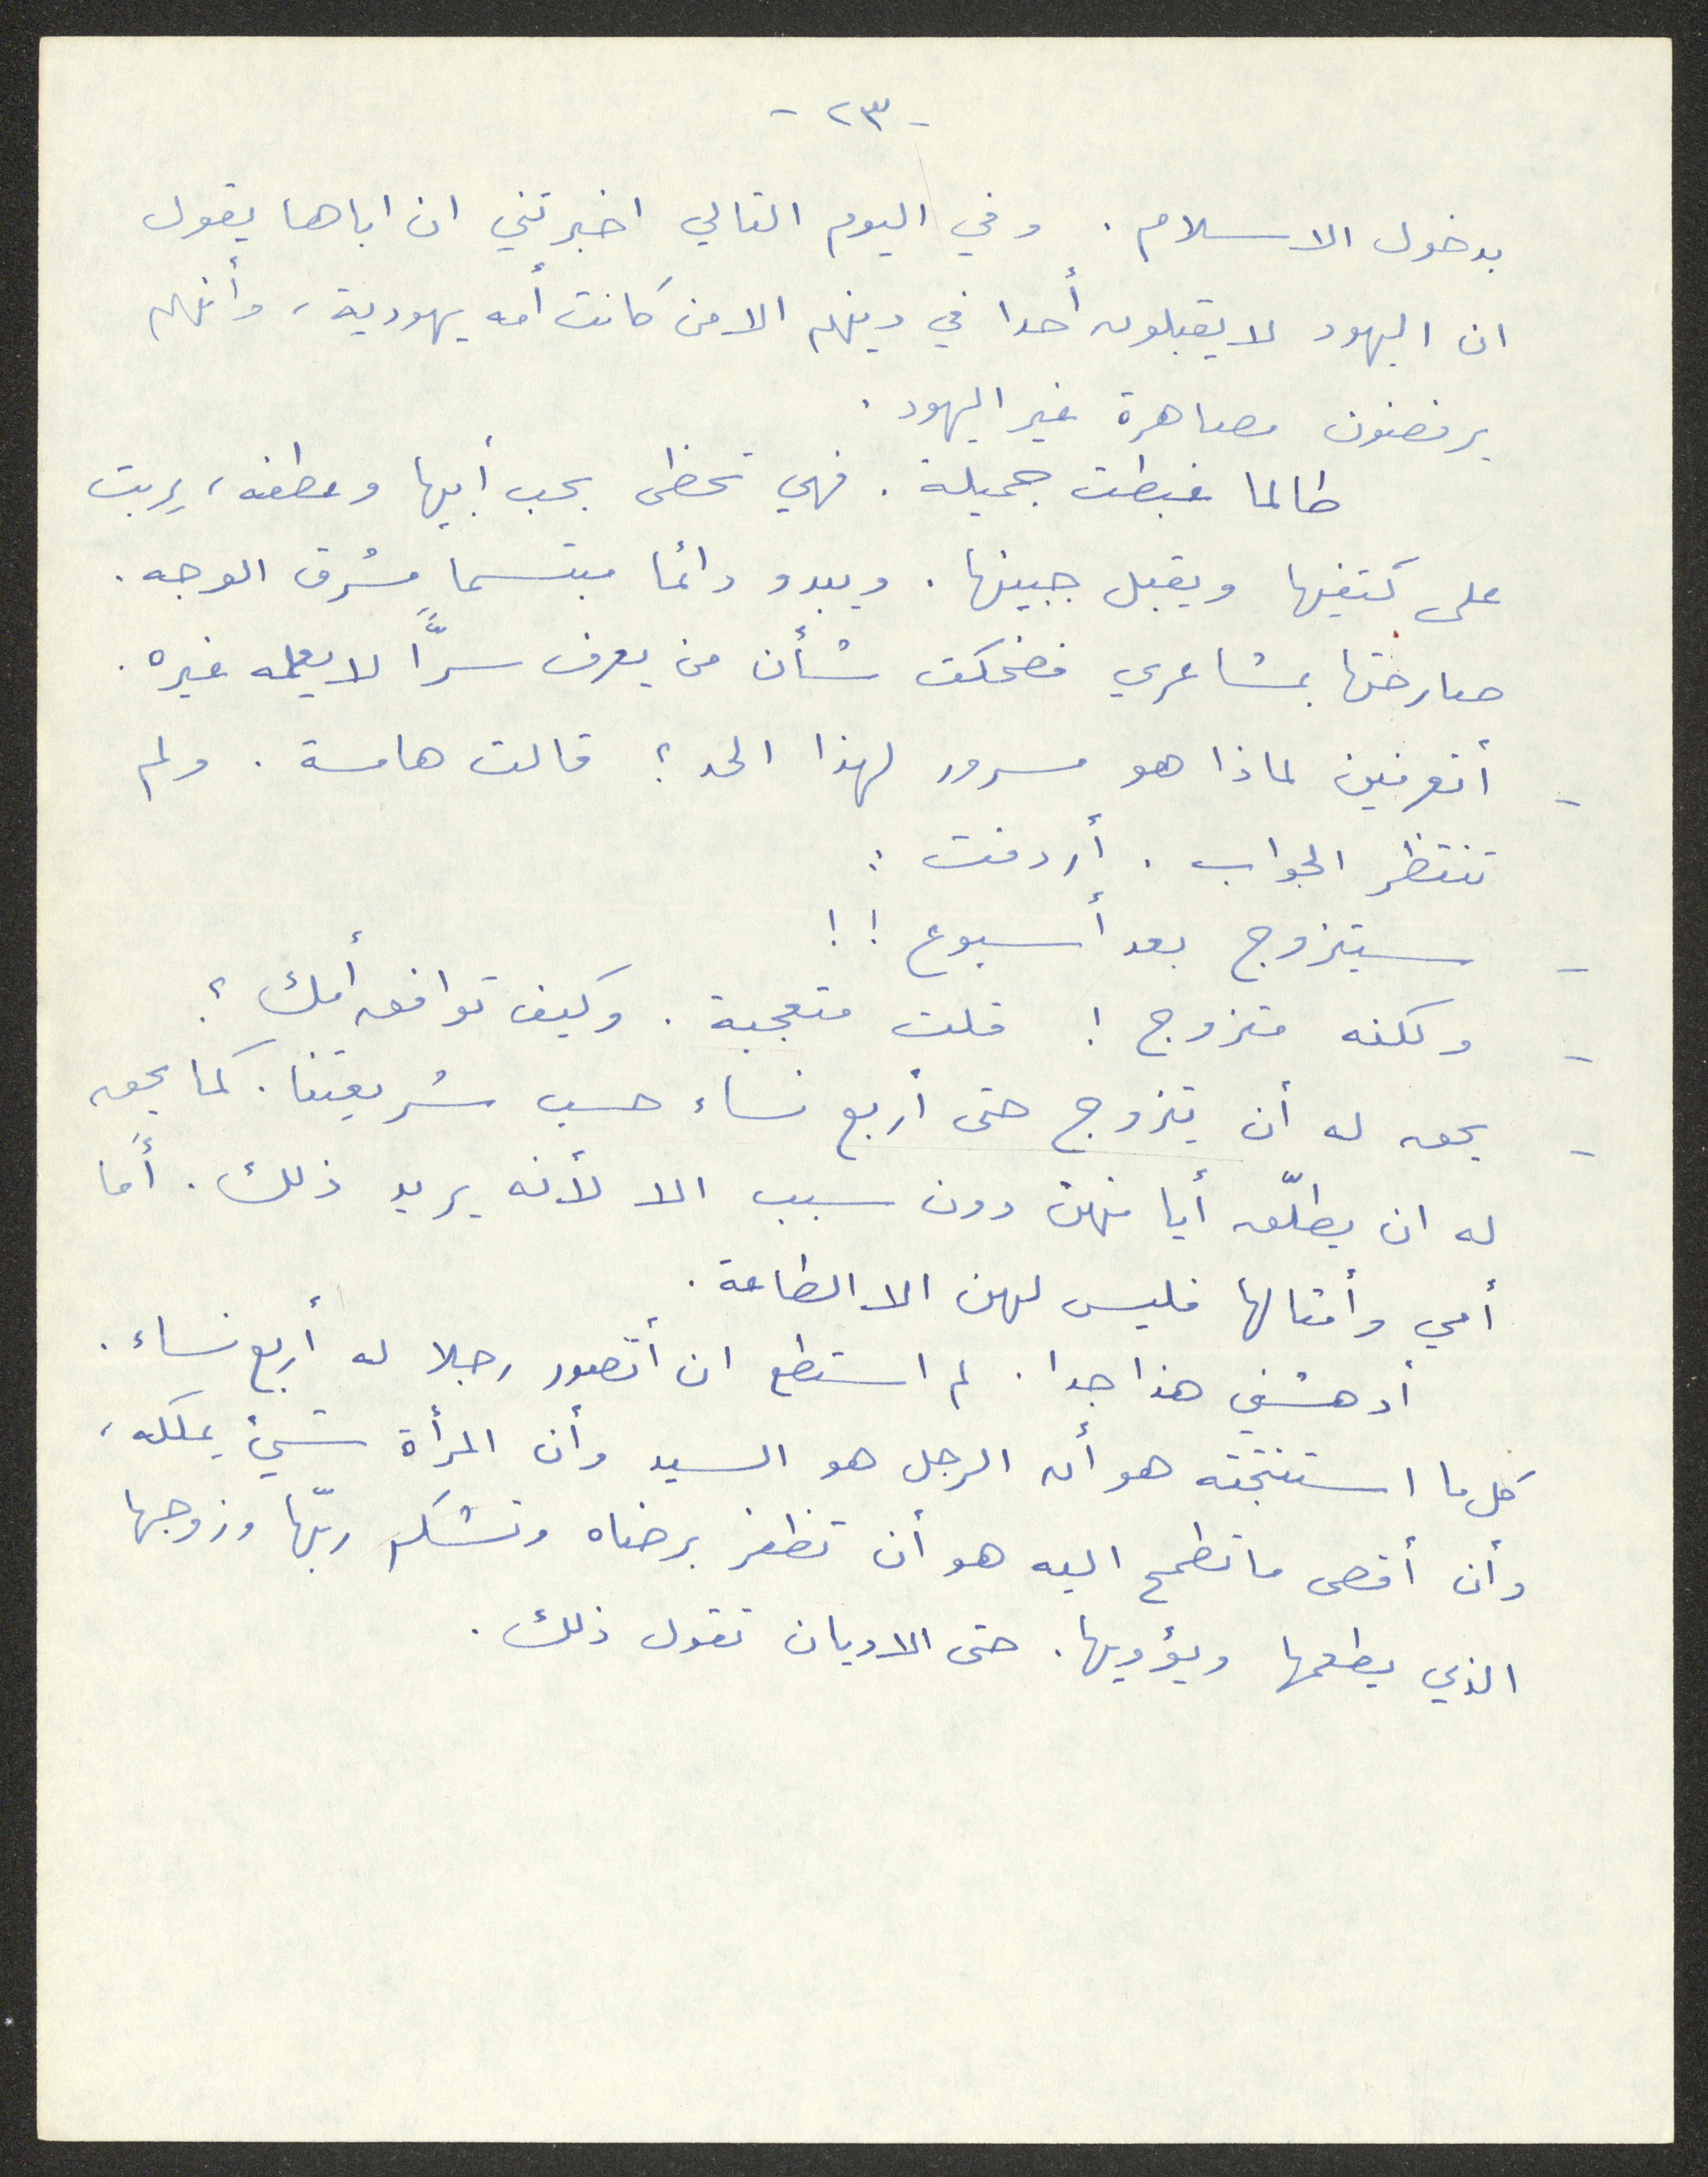 - ٢٣ -
بدخول الاسلام . وفي اليوم التالي اخبرتني ان اباها يقول
ان اليهود لا يقبلون أحدا في دينهم الا من كانت أمه يهودية، وأنهم
يرفضون مصاهرة غير اليهود .
طالما غبطت جميلة . فهي تحظى بحب أبيها وعطفه، يربت
على كتفيها ويقبل جبينها . ويبدو دائما مبتسما مشرق الوجه .
صارحتها بمشاعري فضحكت شأن من يعرف سرًّا لا يعلمه غيره .
- أتعرفين لماذا هو مسرور لهذا الحد ؟ قالت هامسة . ولم
تنتظر الجواب . أردفت :
- سيتزوج بعد أسبوع !!
- ولكنه متزوج ! قلت متعجبة . وكيف توافق أمك ؟
- يحق له أن يتزوج حتى أربع نساء حسب شريعتنا . كما يحق
له ان يطلّق أيا منهن دون سبب الا لأنه يريد ذلك . أما
أمي وأمثالها فليس لهن الا الطاعة .
أدهشني هذا جدا . لم استطع ان أتصور رجلا له أربع نساء .
كل ما استنتجته هو أن الرجل هو السيد وأن المرأة شيئ يملكه،
وأن أقصى ما تطمح اليه هو أن تظفر برضاه وتشكر ربّها وزوجها
الذي يطعمها ويؤويها . حتى الاديان تقول ذلك .